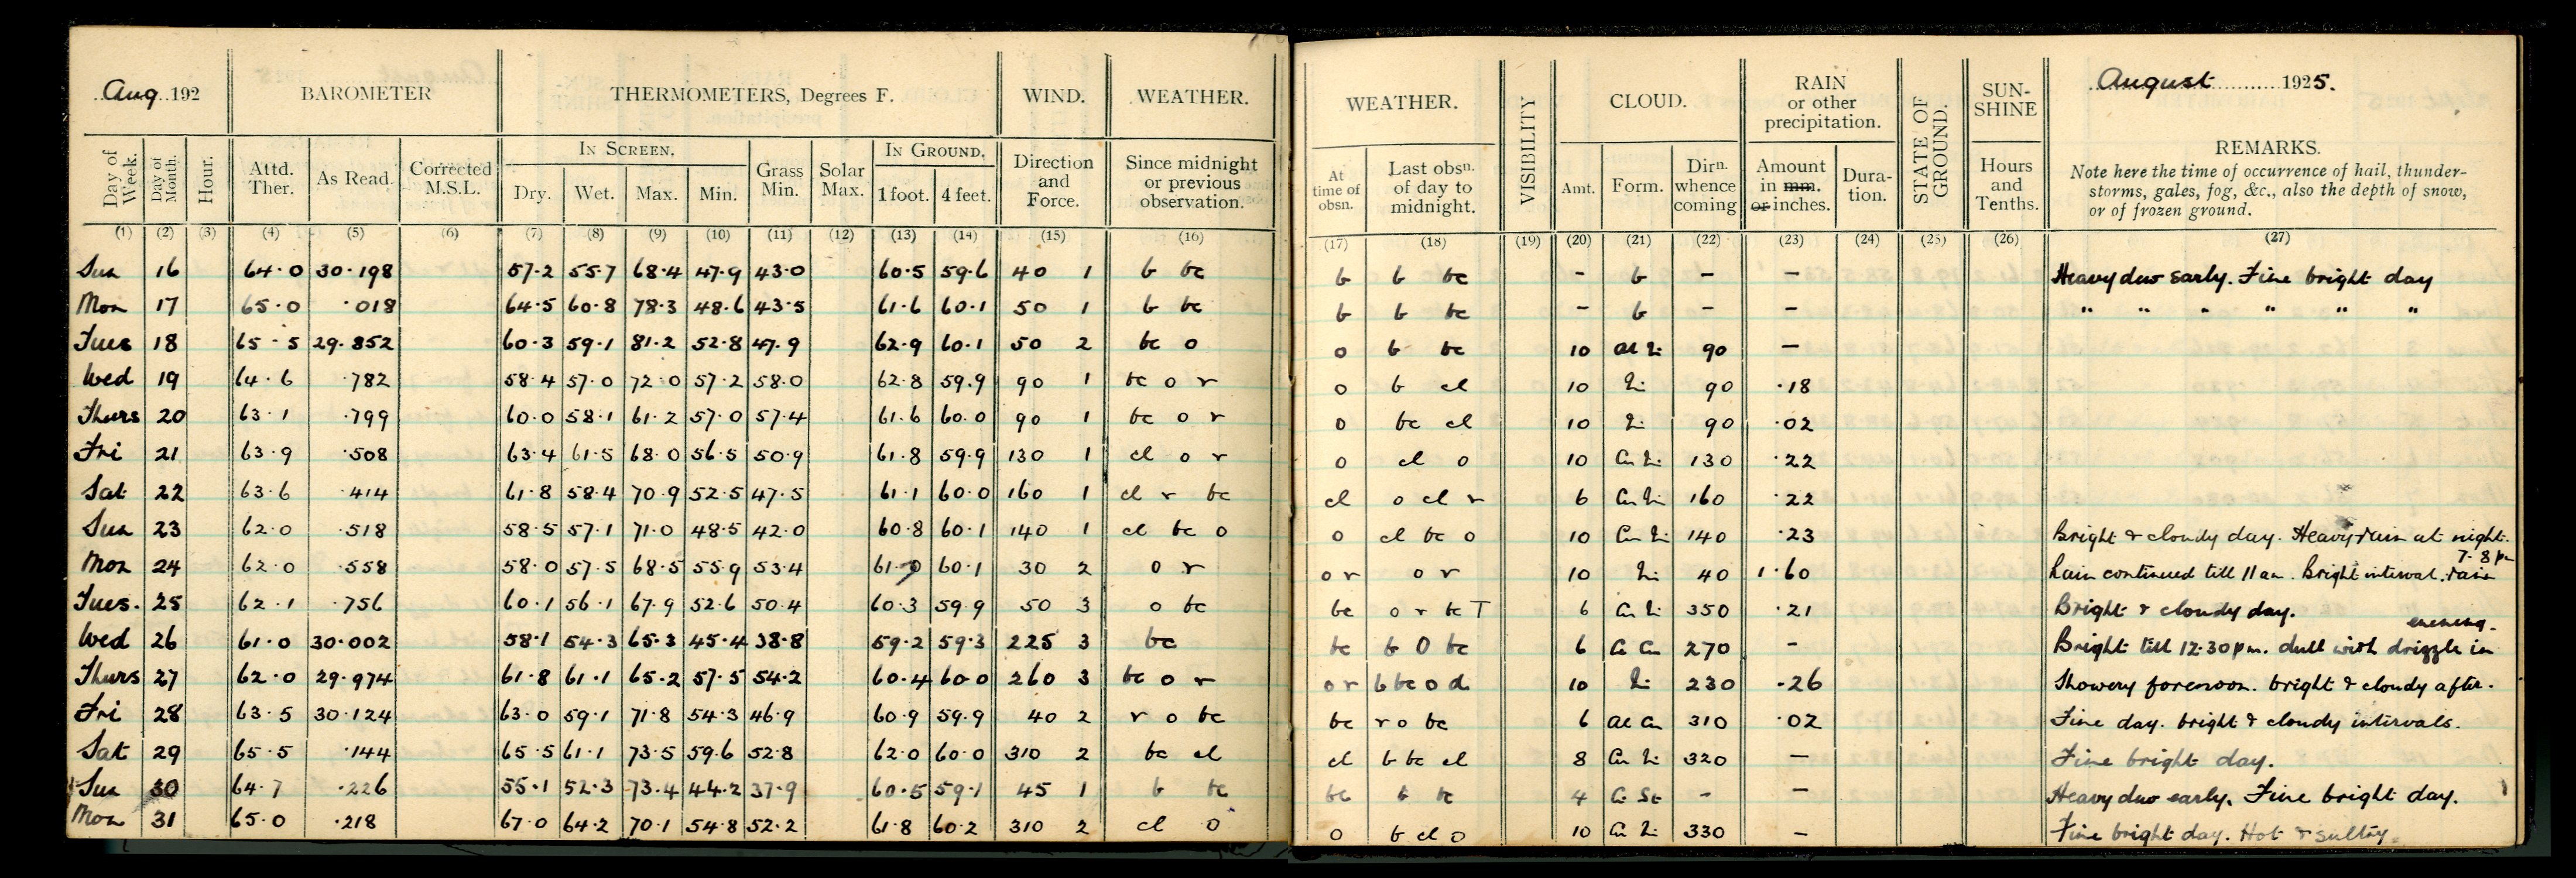 Aug 192
BAROMETER
THERMOMETERS, Degrees F.
WIND.
WEATHER.
Day of Week.
Day of Month.
Hour.
Attd. Ther.
As Read.
Corrected M.S.L.
IN SCREEN.
Dry.
Wet.
Max.
Min.
Grass Min.
Solar Max.
IN GROUND.
1 foot.
4 feet.
Direction and Force.
Since midnight or previous observation.
(1) (2) (3) (4) (5) (6) (7) (8) (9) (10) (11) (12) (13) (14) (15) (16)
Sun 16 64.0 30.198 57.2 55.7 68.4 47.9 43.0 60.5 59.6 40 1 b bc
Mon 17 65.0 .018 64.5 60.8 78.3 48.6 43.5 61.6 60.1 50 1 b bc
Tues 18 65.5 29.852 60.3 59.1 81.2 52.8 47.9 62.9 60.1 50 2 bc o
Wed 19 64.6 .782 58.4 57.0 72.0 57.2 58.0 62.8 59.9 90 1 bc o r
Thurs 20 63.1 .799 60.0 58.1 61.2 57.0 57.4 61.6 60.0 90 1 bc o r
Fri 21 63.9 .508 63.4 61.5 68.0 56.5 50.9 61.8 59.9 130 1 cl o r
Sat 22 63.6 .414 61.8 58.4 70.9 52.5 47.5 61.1 60.0 160 1 cl r bc
Sun 23 62.0 .518 58.5 57.1 71.0 48.5 42.0 60.8 60.1 140 1 cl bc o
Mon 24 62.0 .558 58.0 57.5 68.5 55.9 53.4 60.1 30 2 o r
Tues. 25 62.1 .756 60.1 56.1 67.9 52.6 50.4 60.3 59.9 50 3 o bc
Wed 26 61.0 30.002 58.1 54.3 65.3 45.4 38.8 59.2 59.3 225 3 bc
Thurs 27 62.0 29.974 61.8 61.1 65.2 57.5 54.2 60.4 60.0 260 3 bc o r
Fri 28 63.5 30.124 63.0 59.1 71.8 54.3 46.9 60.9 59.9 40 2 r o bc
Sat 29 65.5 .144 65.5 61.1 73.5 59.6 52.8 62.0 60.0 310 2 bc cl
Sun 30 64.7 .226 55.1 52.3 73.4 44.2 37.9 60.5 59.1 45 1 b bc
Mon 31 65.0 .218 67.0 64.2 70.1 54.8 52.2 61.8 60.2 310 2 cl o
WEATHER.
At time of obsn.
Last obsn. of day to midnight.
VISIBILITY
CLOUD.
Amt.
Form.
Dirn. whence coming
RAIN
or other
precipitation.
Amount in mm. or inches.
Duration.
STATE OF GROUND.
SUNSHINE
Hours and Tenths.
August 1925.
REMARKS.
Note here the time of occurrence of hail, thunder-
storms, gales, fog, &c., also the depth of snow,
or of frozen ground.
(17) (18) (19) (20) (21) (22) (23) (24) (25) (26) (27)
b b bc – b – – Heavy dew early. Fine bright day
b b bc – b – – " " " " " "
o b bc 10 90 –
o b cl 10 90 .18
o bc cl 10 90 .02
o cl o 10 130 .22
cl o cl r 6 160 .22
o cl bc o 10 140 .23 Bright & cloudy day. Heavy rain at night.
o r o r 10 40 1.60 Rain continued till 11 am. Bright interval. rain 7-8 pm
bc o r bc T 6 350 .21 Bright & cloudy day.
bc b O bc 6 270 – Bright till 12.30 pm. dull with drizzle in evening.
o r b bc o d 10 230 .26 Showery forenoon. bright & cloudy after.
bc r o bc 6 310 .02 Fine day. bright & cloudy intervals.
cl b bc cl 8 320 – Fine bright day.
bc b bc 4 – – Heavy dew early. Fine bright day.
o b cl o 10 330 – Fine bright day. Hot & sultry.